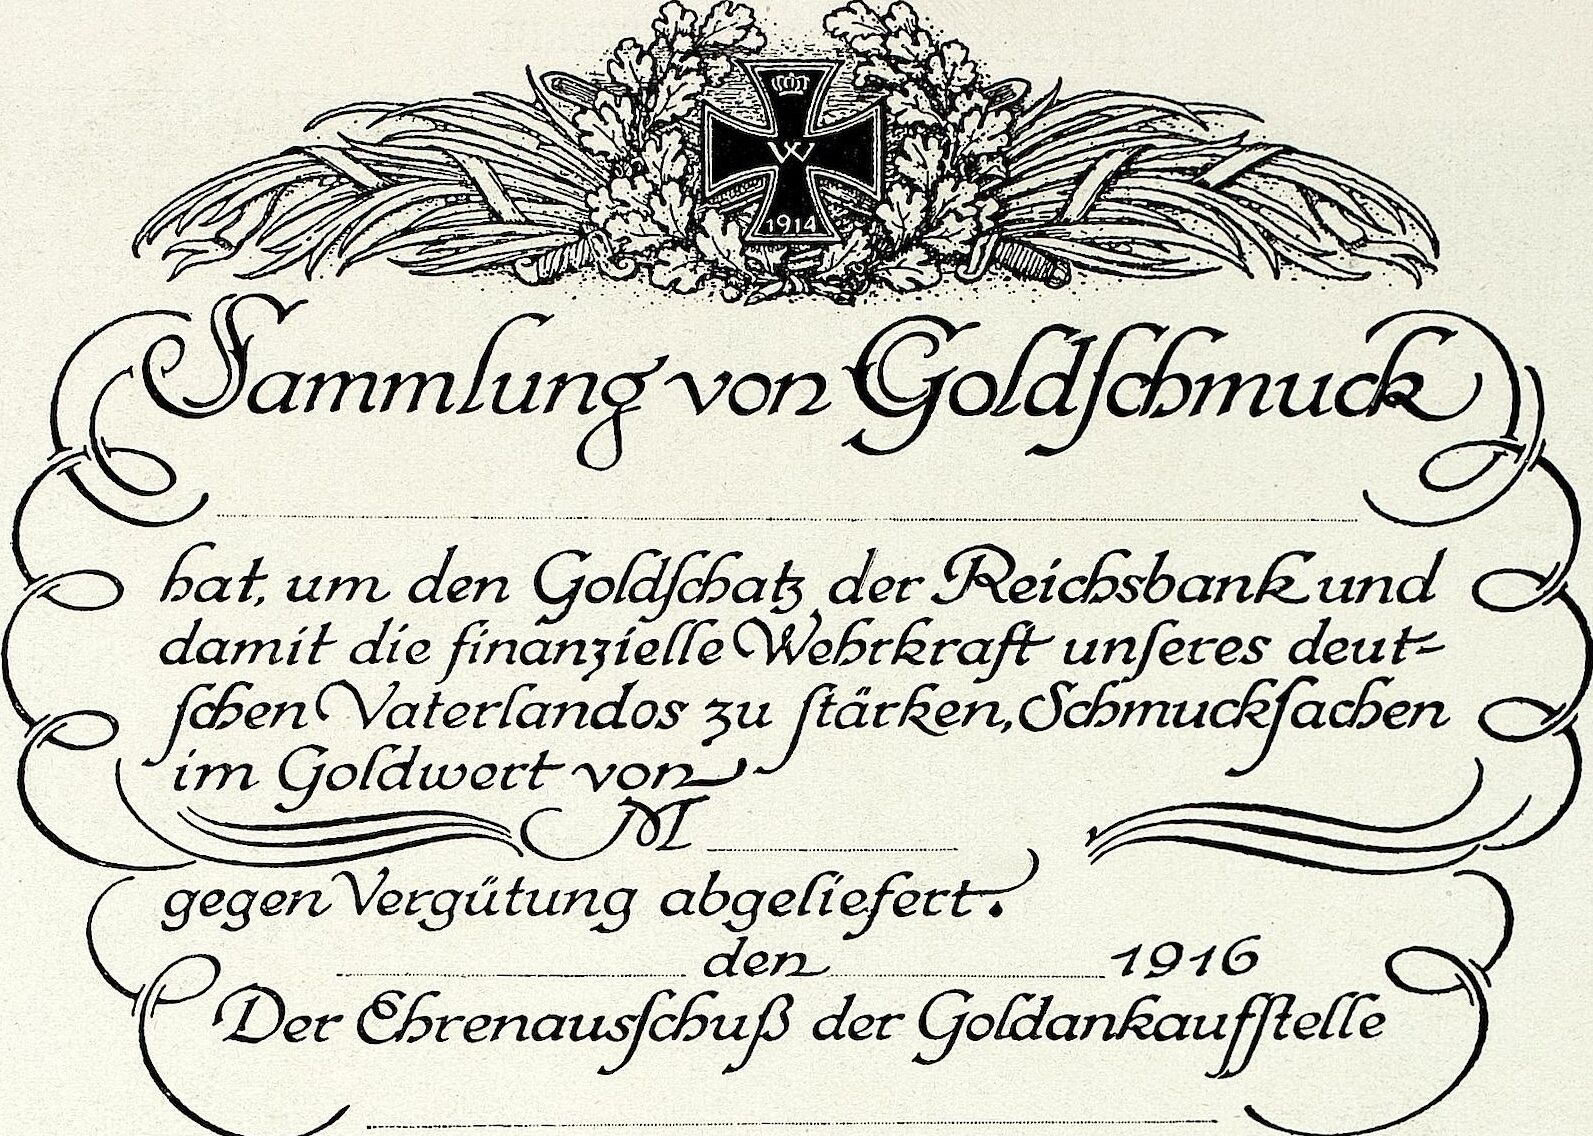 W
1914
Sammlung von Goldſchmuck
hat, um den Goldſchatz der Reichsbank und
damit die finanzielle Wehrkraft unſeres deut=
ſchen Vaterlandos zu ſtärken, Schmuckſachen
im Goldwert von
M
gegen Vergütung abgeliefert.
den 1916
Der Ehrenausſchuß der Goldankaufſtelle